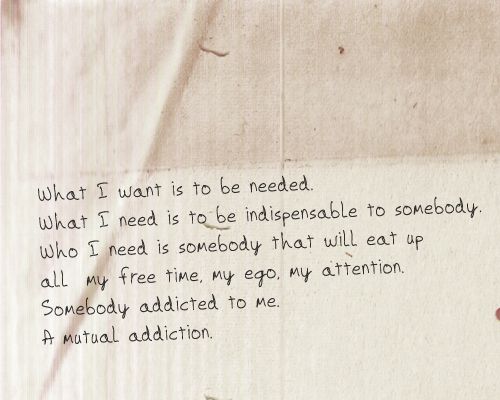 What I want is to be needed.
What I need is to be indispensable to somebody.
Who I need is somebody that will eat up
all my free time, my ego, my attention.
Somebody addicted to me.
A mutual addiction.